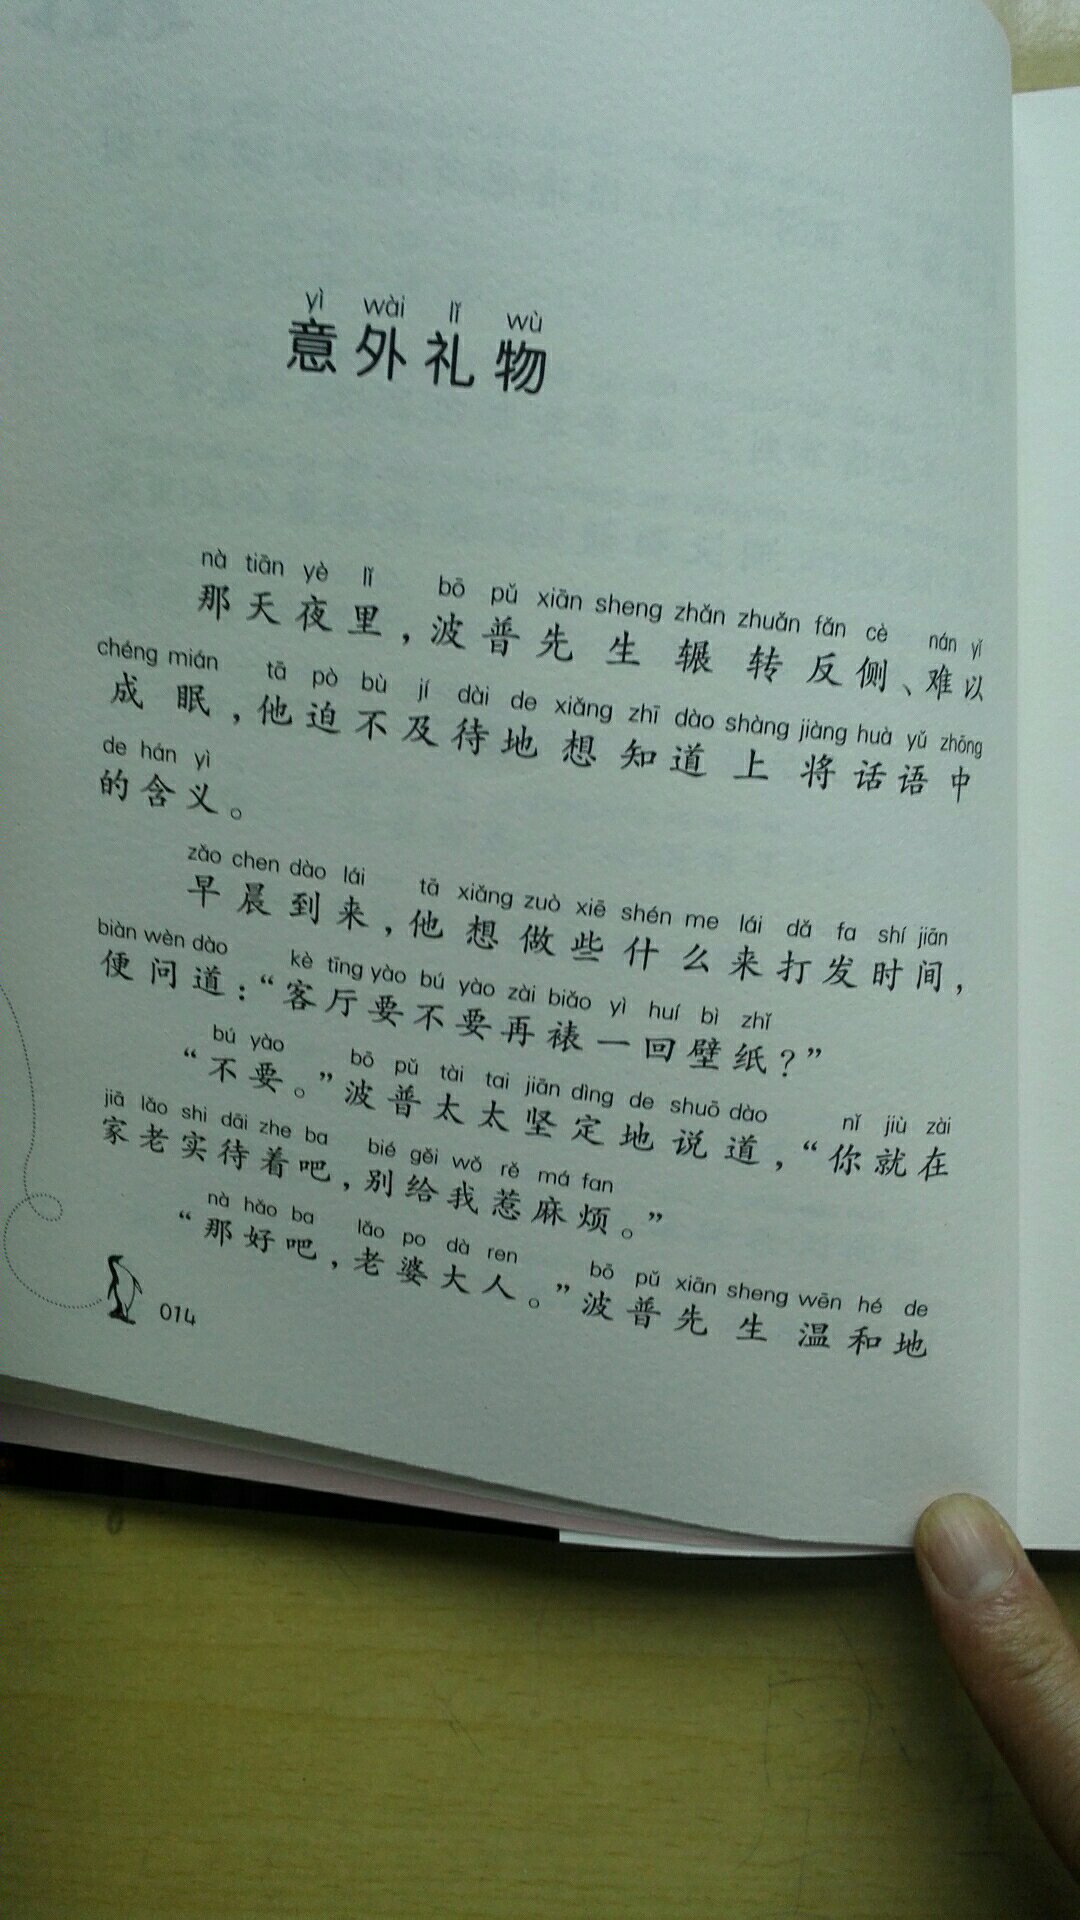 yì wài lǐ wù
意外礼物
nà tiān yè lǐ bō pǔ xiān sheng zhǎn zhuǎn fǎn cè nán yǐ
那天夜里，波普先生辗转反侧、难以
chéng mián tā pò bù jí dài de xiǎng zhī dào shàng jiàng huà yǔ zhōng
成眠，他迫不及待地想知道上将话语中
de hán yì
的含义。
zǎo chen dào lái tā xiǎng zuò xiē shén me lái dǎ fa shí jiān
早晨到来，他想做些什么来打发时间，
biàn wèn dào kè tīng yào bú yào zài biǎo yì huí bì zhǐ
便问道：“客厅要不要再裱一回壁纸？”
bú yào bō pǔ tài tai jiān dìng de shuō dào nǐ jiù zài
“不要。”波普太太坚定地说道，“你就在
jiā lǎo shi dāi zhe ba bié gěi wǒ rě má fan
家老实待着吧，别给我惹麻烦。”
nà hǎo ba lǎo po dà ren bō pǔ xiān sheng wēn hé de
“那好吧，老婆大人。”波普先生温和地
014